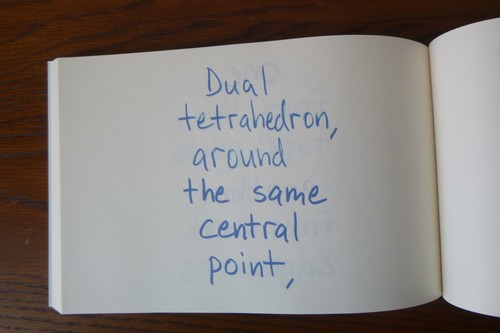 Dual
tetrahedron,
around
the same
central
point,